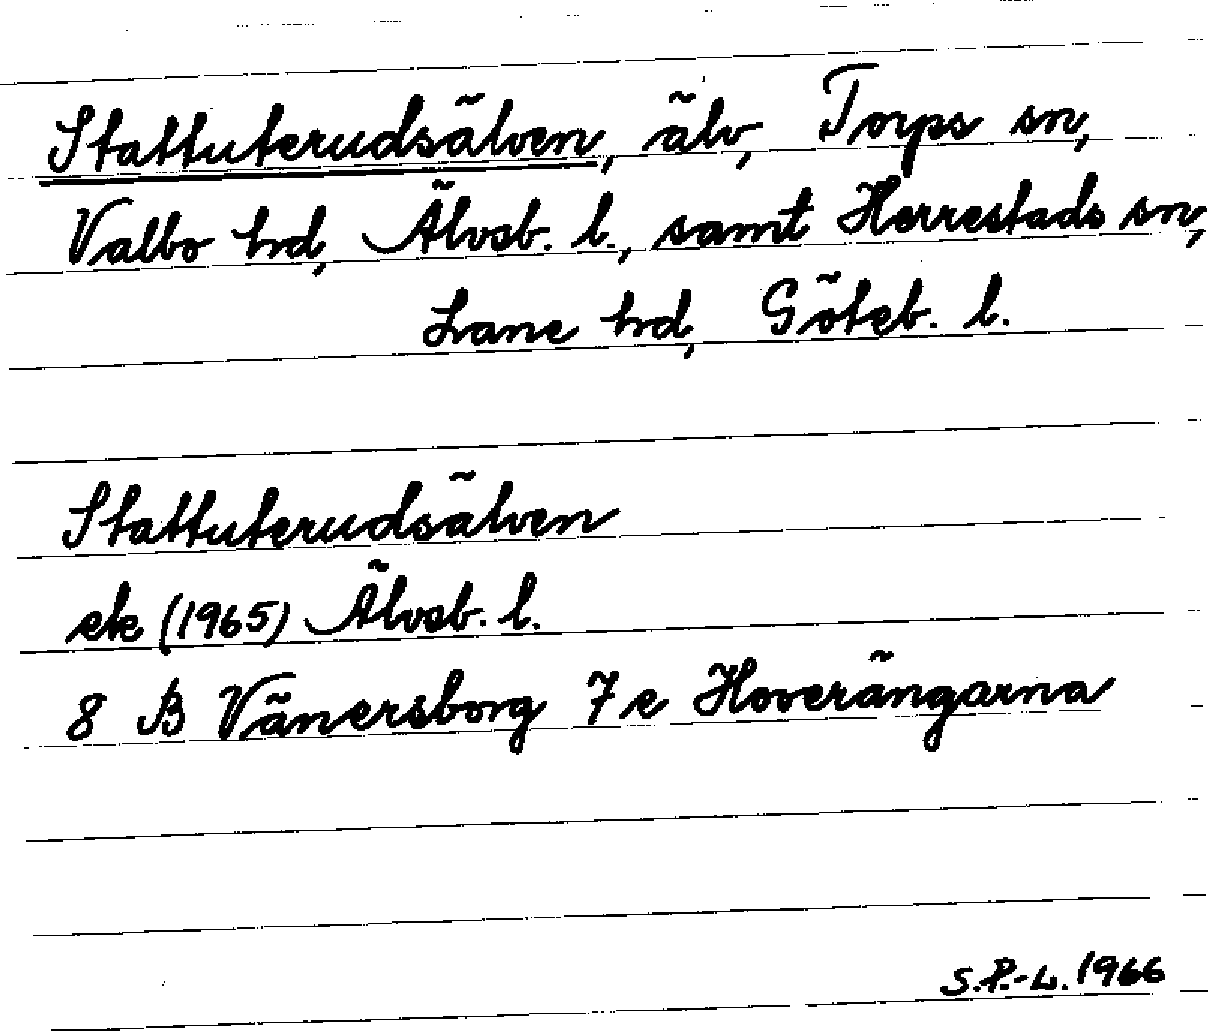 Stattuterudsälven, älv, Torps sn,
Valbo hd, Älvsb. l., samt Herrestads sn,
Lane hd, Göteb. l.
Stattuterudsälven
ek (1965) Älvsb. l.
8 B Vänersborg 7 e Hoverängarna
S.P.-L. 1966